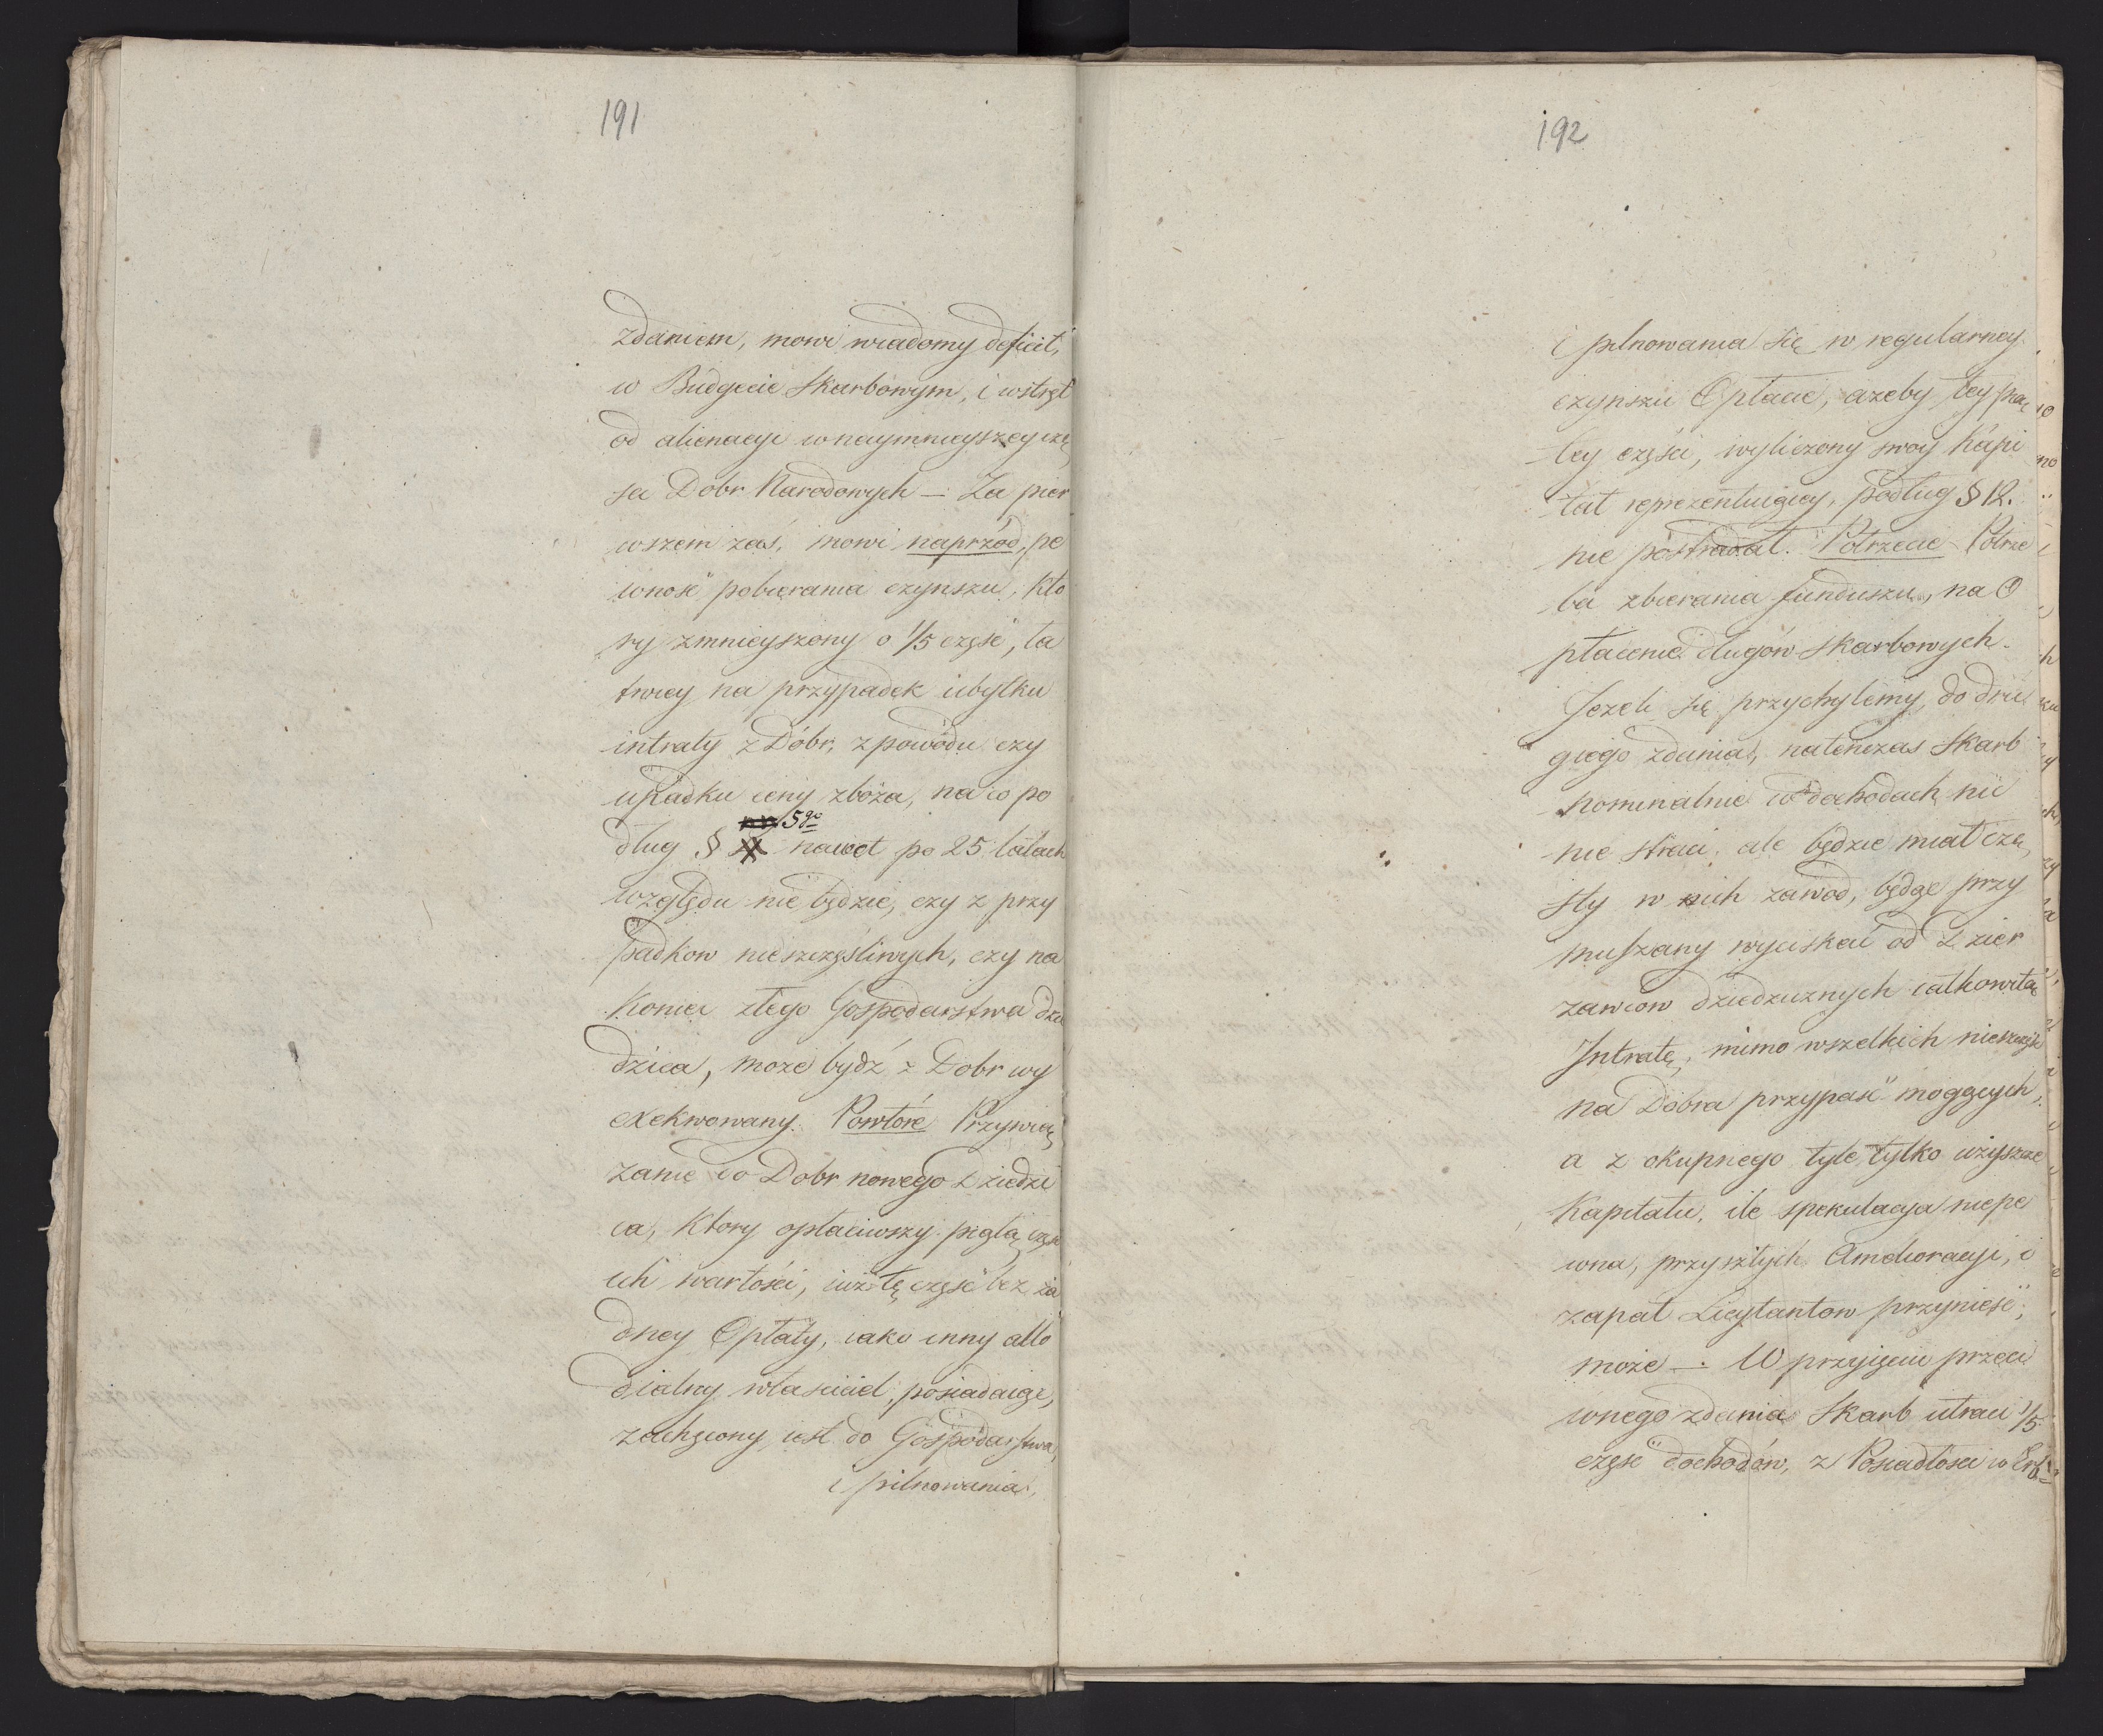 191
zdaniem, mowi wiadomy deficit,
w Budgecie Skarbowym, i wstręt
od alienacyi w naymnieyszey czę
sci Dobr Narodowych — Za pier
wszem zaś, mowi naprzód, pe
wność pobierania czynszu, kto
ry zmnieyszony o 1/5 część, ta
twiey na przypadek ubytku
intraty z Dóbr, z powodu czy
upadku ceny zboża, na co po
dług § 5go nawet po 25 latach
względu nie będzie, czy z przy
padkow nieszczęśliwych, czy na
koniec złego Gospodarstwa dzie
dzica, może bydź z Dobr wy
exekwowany. Powtóre Przywią
zanie do Dobr nowego Dziedzi
ca, który opłaciwszy piątą część
ich wartości, iuż tę część bez ża
dney Opłaty, iako inny allo
dialny właściciel, posiadaiąc,
zachęcony iest do Gospodarstwa,
i pilnowania,
192
i pilnowania się w regularney
czynszu Opłacie, ażeby tey pią
tey części, wyliczony swoy Kapi
tał reprezentuiącey, podług § 12.
nie postradał. Potrzecie Potrze
ba zbierania funduszu, na O
płacenie długów Skarbowych.
Jeżeli się przychylemy, do dru
giego zdania, natenczas Skarb
nominalnie w dochodach nic
nie straci, ale będzie miał czę,
sty w nich zawod, będąc przy
muszany wyciskać od Dzier
zawcow dziedzicznych całkowitą
Intratę, mimo wszelkich nieszczęść
na Dobra przypaść mogących,
a z okupnego tyle tylko uzyszcze
Kapitału, ile spekulacya niepe
wna, przyszłych Amelioracyi, i
zapał Licytantow przynieść,
może —. W przyięciu przeci
wnego zdania Skarb utraci 1/5
część dochodów, z Posiadłości w